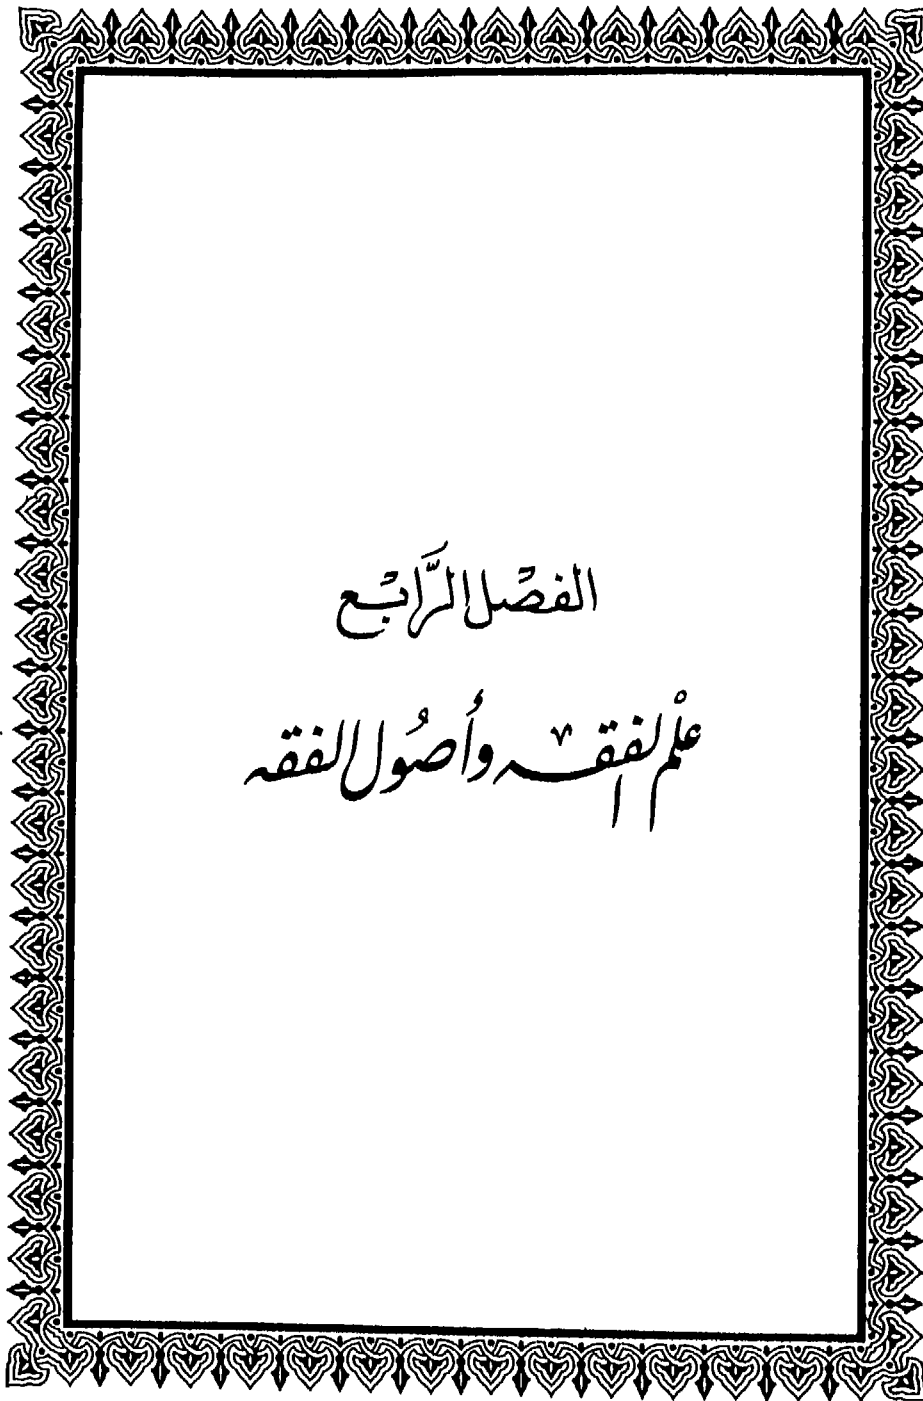 الفصل الرَّابع
علْم الفقه وأُصُول الفقه